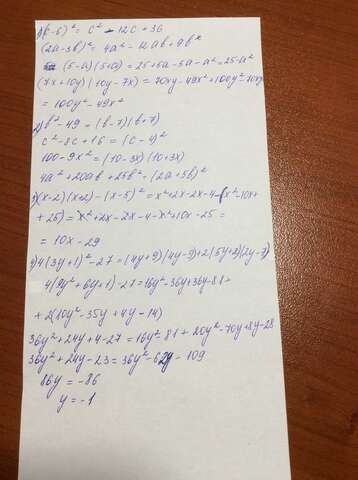 1) (c-6)² = c² - 12c + 36
(2a-3b)² = 4a² - 12ab + 9b²
(5-a)(5+a) = 25+5a-5a-a² = 25-a²
(7x+10y)(10y-7x) = 70xy-49x²+100y²-70xy
= 100y²-49x²
2) b²-49 = (b-7)(b+7)
c²-8c+16 = (c-4)²
100-9x² = (10-3x)(10+3x)
4a²+20ab+25b² = (2a+5b)²
3) (x-2)(x+2)-(x-5)² = x²+2x-2x-4-(x²-10x+
+25) = x²+2x-2x-4-x²+10x-25 =
= 10x-29
4) 4(3y+1)²-27 = (4y+9)(4y-9)+2(5y+2)(2y-7)
4(9y²+6y+1)-27 = 16y²-36y+36y-81+
+2(10y²-35y+4y-14)
36y²+24y+4-27 = 16y²-81+20y²-70y+8y-28
36y²+24y-23 = 36y²-62y-109
86y = -86
y = -1